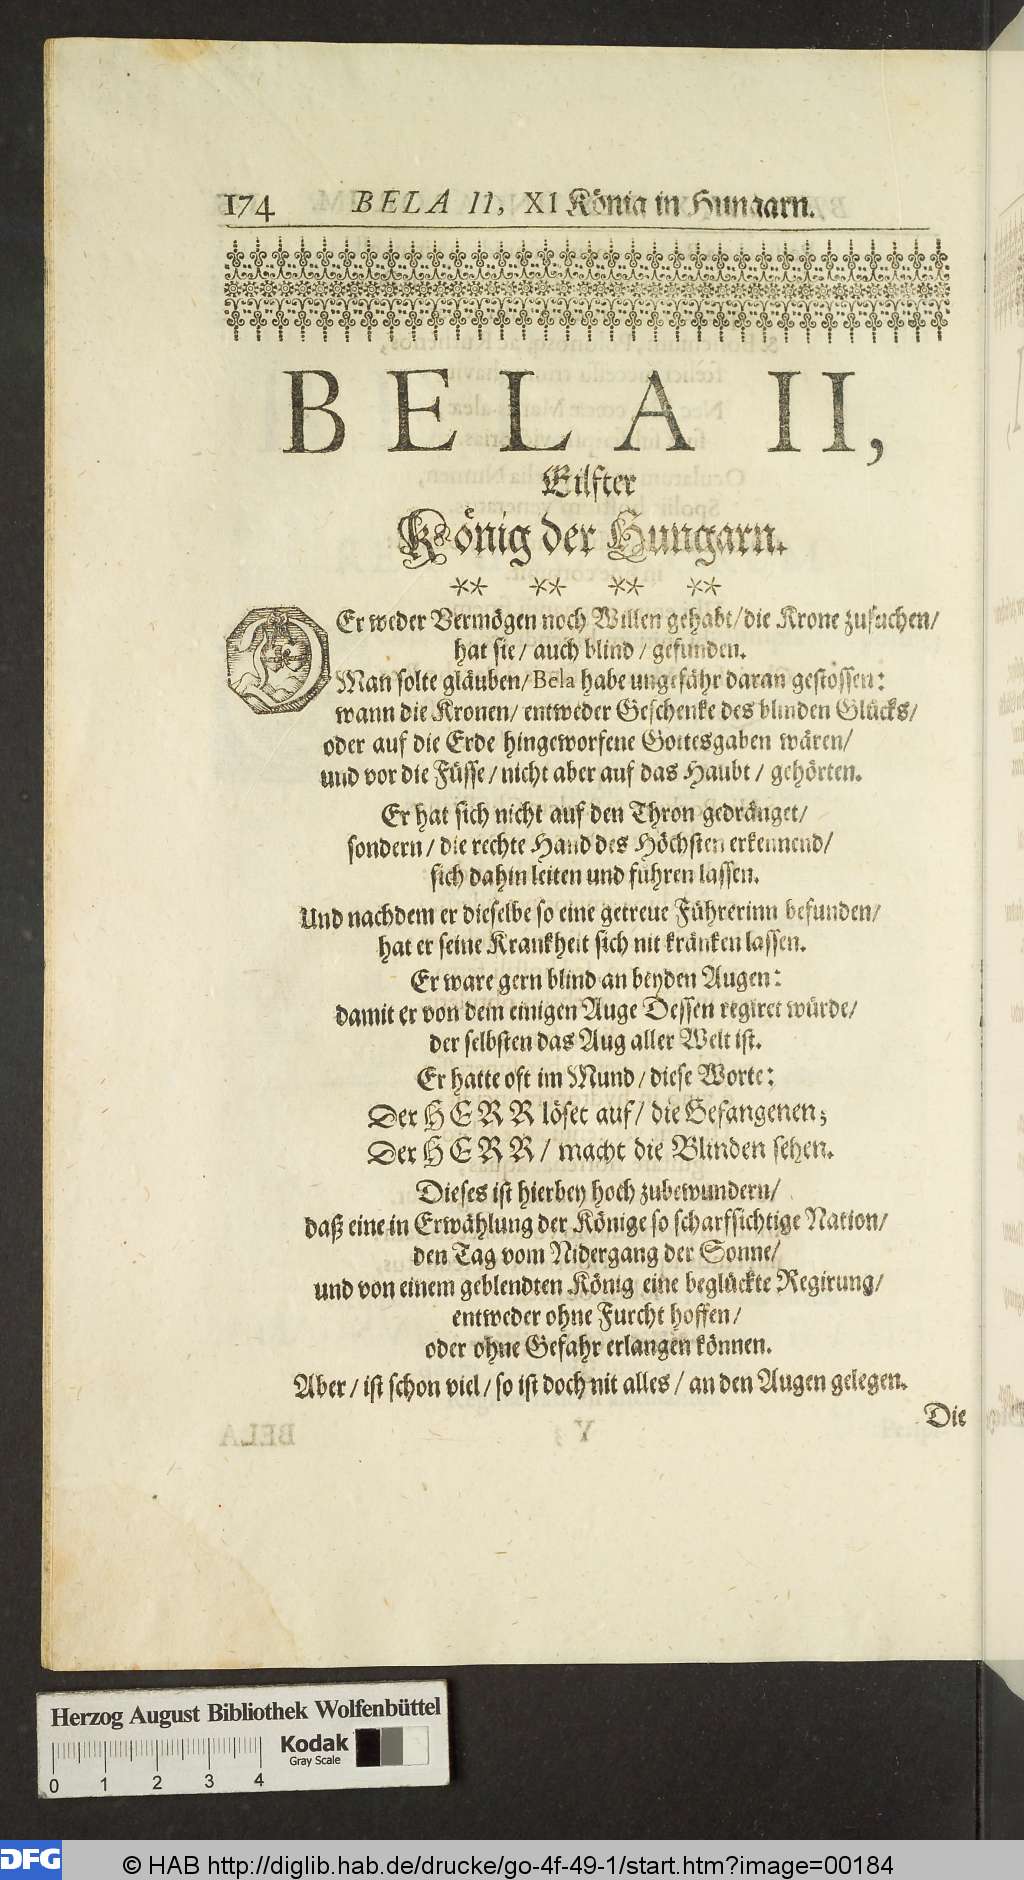 174 BELA II, XI König in Hungarn.
BELA II,
Eilfter
König der Hungarn.
** ** ** **
DEr weder Vermögen noch Willen gehabt/ die Krone zusuchen/
hat sie/ auch blind/ gefunden.
Man solte gläuben/ Bela habe ungefähr daran gestossen:
wann die Kronen/ entweder Geschenke des blinden Glücks/
oder auf die Erde hingeworfene Gottesgaben wären/
und vor die Füsse/ nicht aber auf das Haubt/ gehörten.
Er hat sich nicht auf den Thron gedränget/
sondern/ die rechte Hand des Höchsten erkennend/
sich dahin leiten und führen lassen.
Und nachdem er dieselbe so eine getreue Führerinn befunden/
hat er seine Krankheit sich nit kränken lassen.
Er ware gern blind an beyden Augen:
damit er von dem einigen Auge Dessen regiret würde/
der selbsten das Aug aller Welt ist.
Er hatte oft im Mund/ diese Worte:
Der HERR löset auf/ die Gefangenen;
Der HERR/ macht die Blinden sehen.
Dieses ist hierbey hoch zubewundern/
daß eine in Erwählung der Könige so scharfsichtige Nation/
den Tag vom Nidergang der Sonne/
und von einem geblendten König eine beglückte Regirung/
entweder ohne Furcht hoffen/
oder ohne Gefahr erlangen können.
Aber/ ist schon viel/ so ist doch nit alles/ an den Augen gelegen.
Die
Herzog August Bibliothek Wolfenbüttel
Kodak
Gray Scale
0 1 2 3 4
DFG © HAB http://diglib.hab.de/drucke/go-4f-49-1/start.htm?image=00184